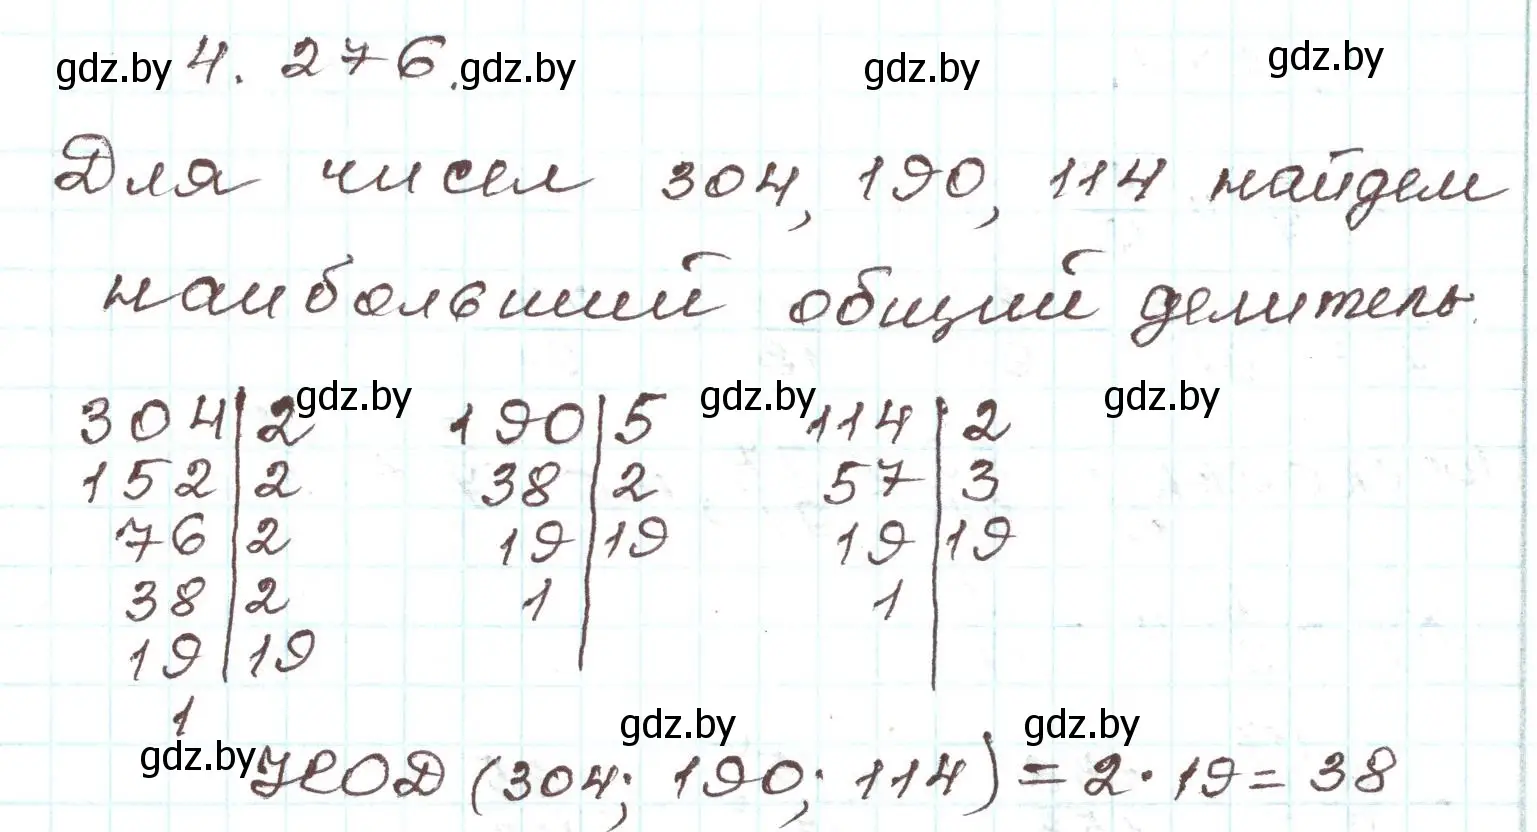 gdz.by 4. 276. gdz.by gdz.by gdz.by
Для чисел 304, 190, 114 найдем
наибольший общий делитель.
304 | 2 gdz.by 190 | 5 gdz.by 114 | 2 gdz.by
152 | 2 38 | 2 57 | 3
76 | 2 19 | 19 19 | 19
38 | 2 1 | 1 |
19 | 19
1
gdz.by gdz.by gdz.by
НОД (304; 190; 114) = 2 · 19 = 38